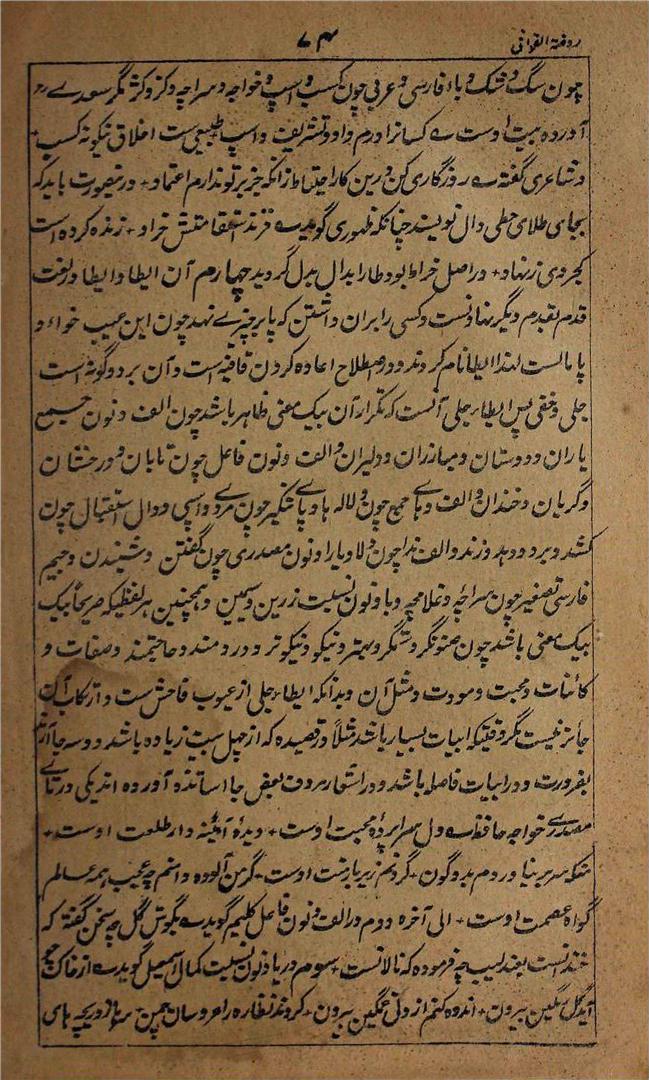 روضة القوافی ۷۴
چون سگ و شک و باء فارسی و عربی چون کسب و اسپ و خواجه و سراچه و کز و کژ مگر سعدی
آورده بیت اوست کسانرا درم داد و تشریف و اسپ طبیعی ست اخلاق نیکو نه کسب
و شاعری گفته روزگاری کن درین کار احتیاط زانکه جز بر تو ندارم اعتماد درینصورت باید که
بجای طلای حطی دال نویسند چنانکه ظهوری گوید زنده کرده است
کجروی زنهاد و در اصل خراط بود طا را بدال بدل گردید چهارم آن ایطا و ایطا در لغت
قدم بقدم دیگر نهادنست و کسی را بران داشتن که پا بر چیزے نهد چون این عیب خواء و
پامالست لهذا ایطا نام کردند و در اصطلاح اعاده کردن قافیه است و آن بر دو گونه است
جلی و خفی پس ایطاء جلی آنست که تکرار آن بیک معنی ظاهر باشد چون الف و نون جمع
یاران و دوستان و مبارزان و دلیران و الف و نون فاعل چون تابان و درخشان
و گریان و خندان و الف و ہاے جمع چون لاله ها و یاے تنکیر چون مردے و اسپی و دال استقبال چون
کشد و برد و دهد و زند و الف ندا چون دلا و یارا و نون مصدری چون گفتن و شنیدن و جیم
فارسی تصغیر چون سراچه و غلامچه و یا و نون نسبت زرین و سیمین و همچنین هر لفظیکه صریحاً بیک
بیک معنی باشد چون صنوبر و ستمگر و بهتر و نیکو و نیکوتر و دردمند و حاجتمند و صفات و
کائنات و محبت و مودت و مثل آن و بدانکه ایطاء جلی از عیوب فاحش ست و ارتکاب آن
جائز نیست مگر وقتیکه ابیات بسیار باشد مثلاً در قصیده که از چهل بیت زیاده باشد و دو سه جا آرند
بضرورت و در ابیات فاصله باشد و در اشعار معروف بعض جا اساتذه آورده اند یکی در تاے
مصدرے خواجه حافظ دل سراپرده محبت اوست دیده آئینه دار طلعت اوست
منکه سر بر نیاورم بدو کون گردنم زیر بار منت اوست گر من آلوده دامنم چه عجب همه عالم
گواه عصمت اوست الی آخره دوم در الف و نون فاعل کلیم گوید بگوش گل چه سخن گفته که
خندانست بعندلیب چه فرموده که نالانست سوم در یا و نون نسبت کمال اسمعیل گوید از خاک
آید گل رنگین بیرون اندوه کنم از دل غمگین بیرون کردند نظاره را عروسان چمن سر از دریچه های